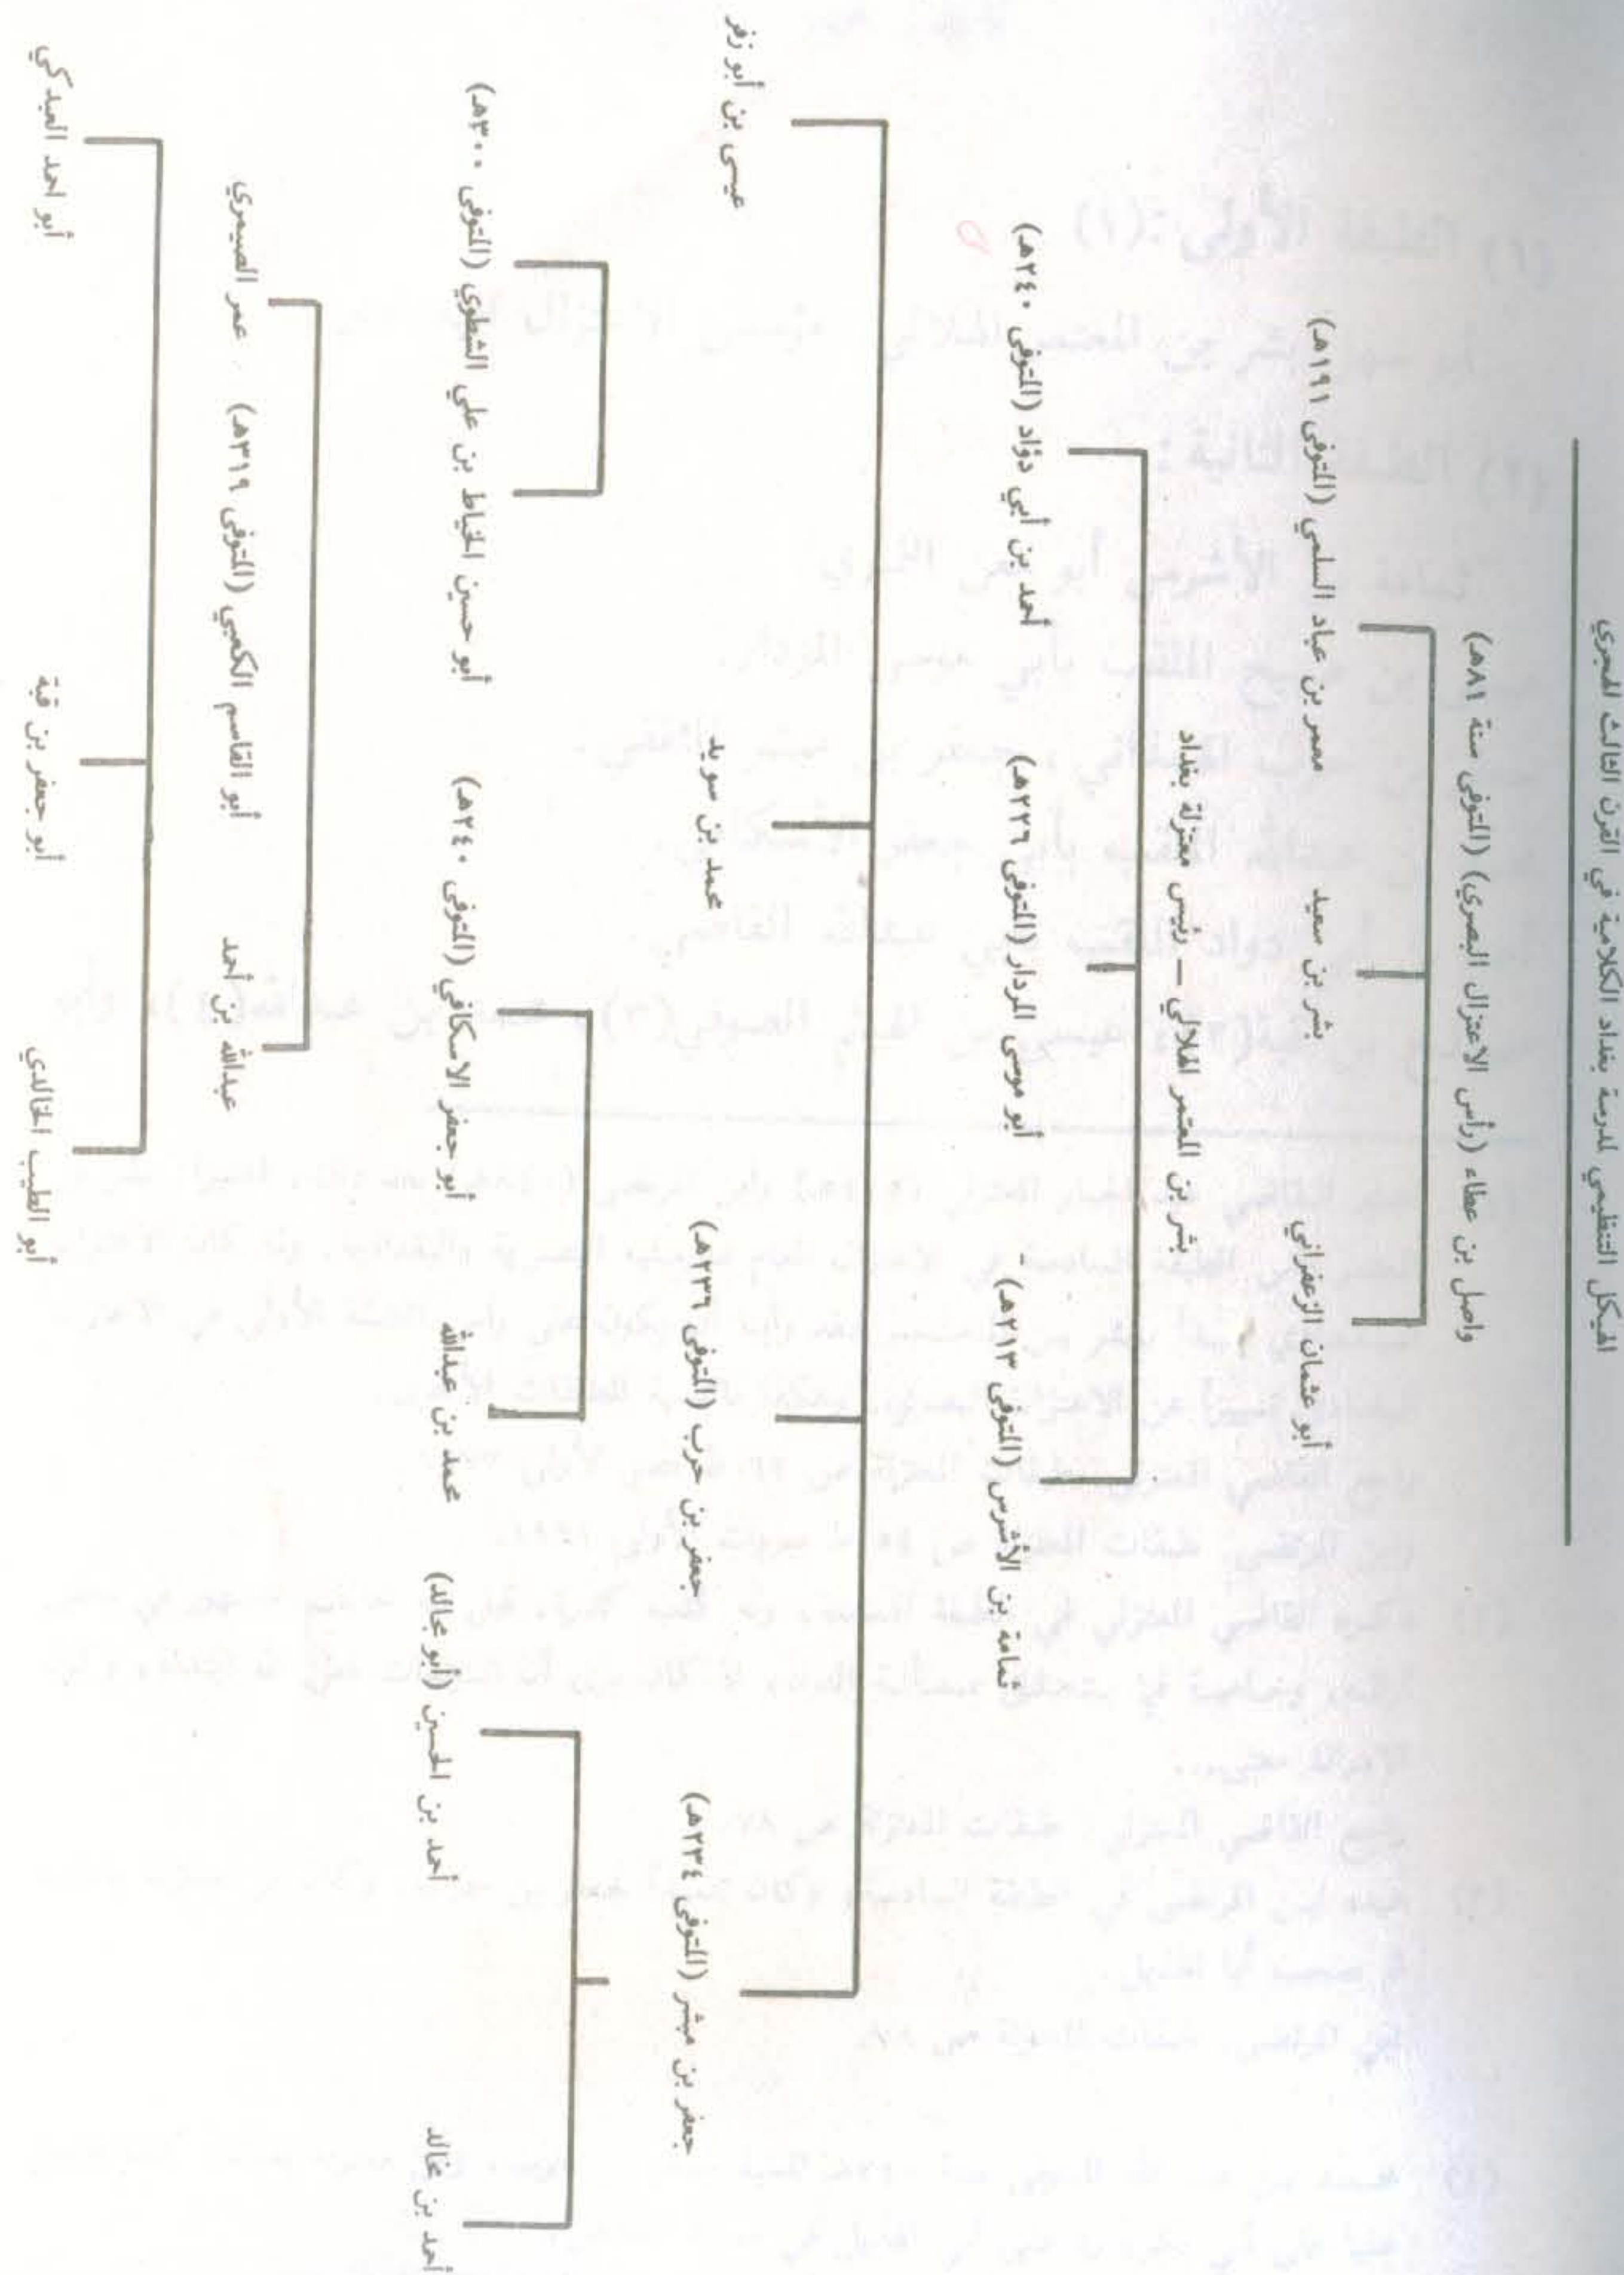 الهيكل التنظيمي لمدرسة بغداد الكلامية في القرن الثالث الهجري
واصل بن عطاء (رأس الاعتزال البصري) (المتوفى سنة ٨١هـ)
أبو عثمان الزعفراني
بشر بن سعيد
معمر بن عباد السلمي (المتوفى ١٩١هـ)
بشر بن المعتمر الهلالي – رئيس معتزلة بغداد
ثمامة بن الأشرس (المتوفى ٢١٣هـ) -
أبو موسى المردار (المتوفى ٢٢٦هـ)
أحمد بن أبي دؤاد (المتوفى ٢٤٠هـ)
جعفر بن مبشر (المتوفى ٢٣٤هـ)
جعفر بن حرب (المتوفى ٢٣٦هـ)
محمد بن سويد
عيسى بن أبو زفر
أحمد بن خالد
أحمد بن الحسين (أبو مجالد)
محمد بن عبدالله
أبو جعفر الاسكافي (المتوفى ٢٤٠هـ)
أبو حسين الخياط بن علي الشطوي (المتوفى ٣٠٠هـ)
عبدالله بن أحمد
أبو القاسم الكعبي (المتوفى ٣١٩هـ)
عمر الصيمري
أبو الطيب الخالدي
أبو جعفر بن قبة
أبو احمد العبدكي